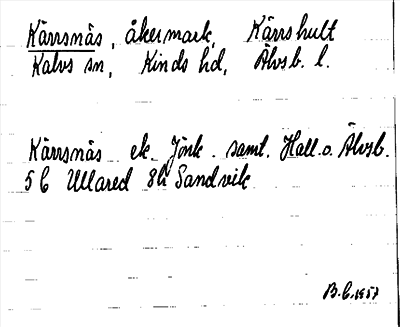 Kärrsnäs, åkermark, Kärrshult
Kalvs sn, Kinds hd, Älvsb. l.
Kärrsnäs ek. Jönk. samt. Hall. o. Älvsb.
5 C Ullared 8h Sandvik
B. C. 1957